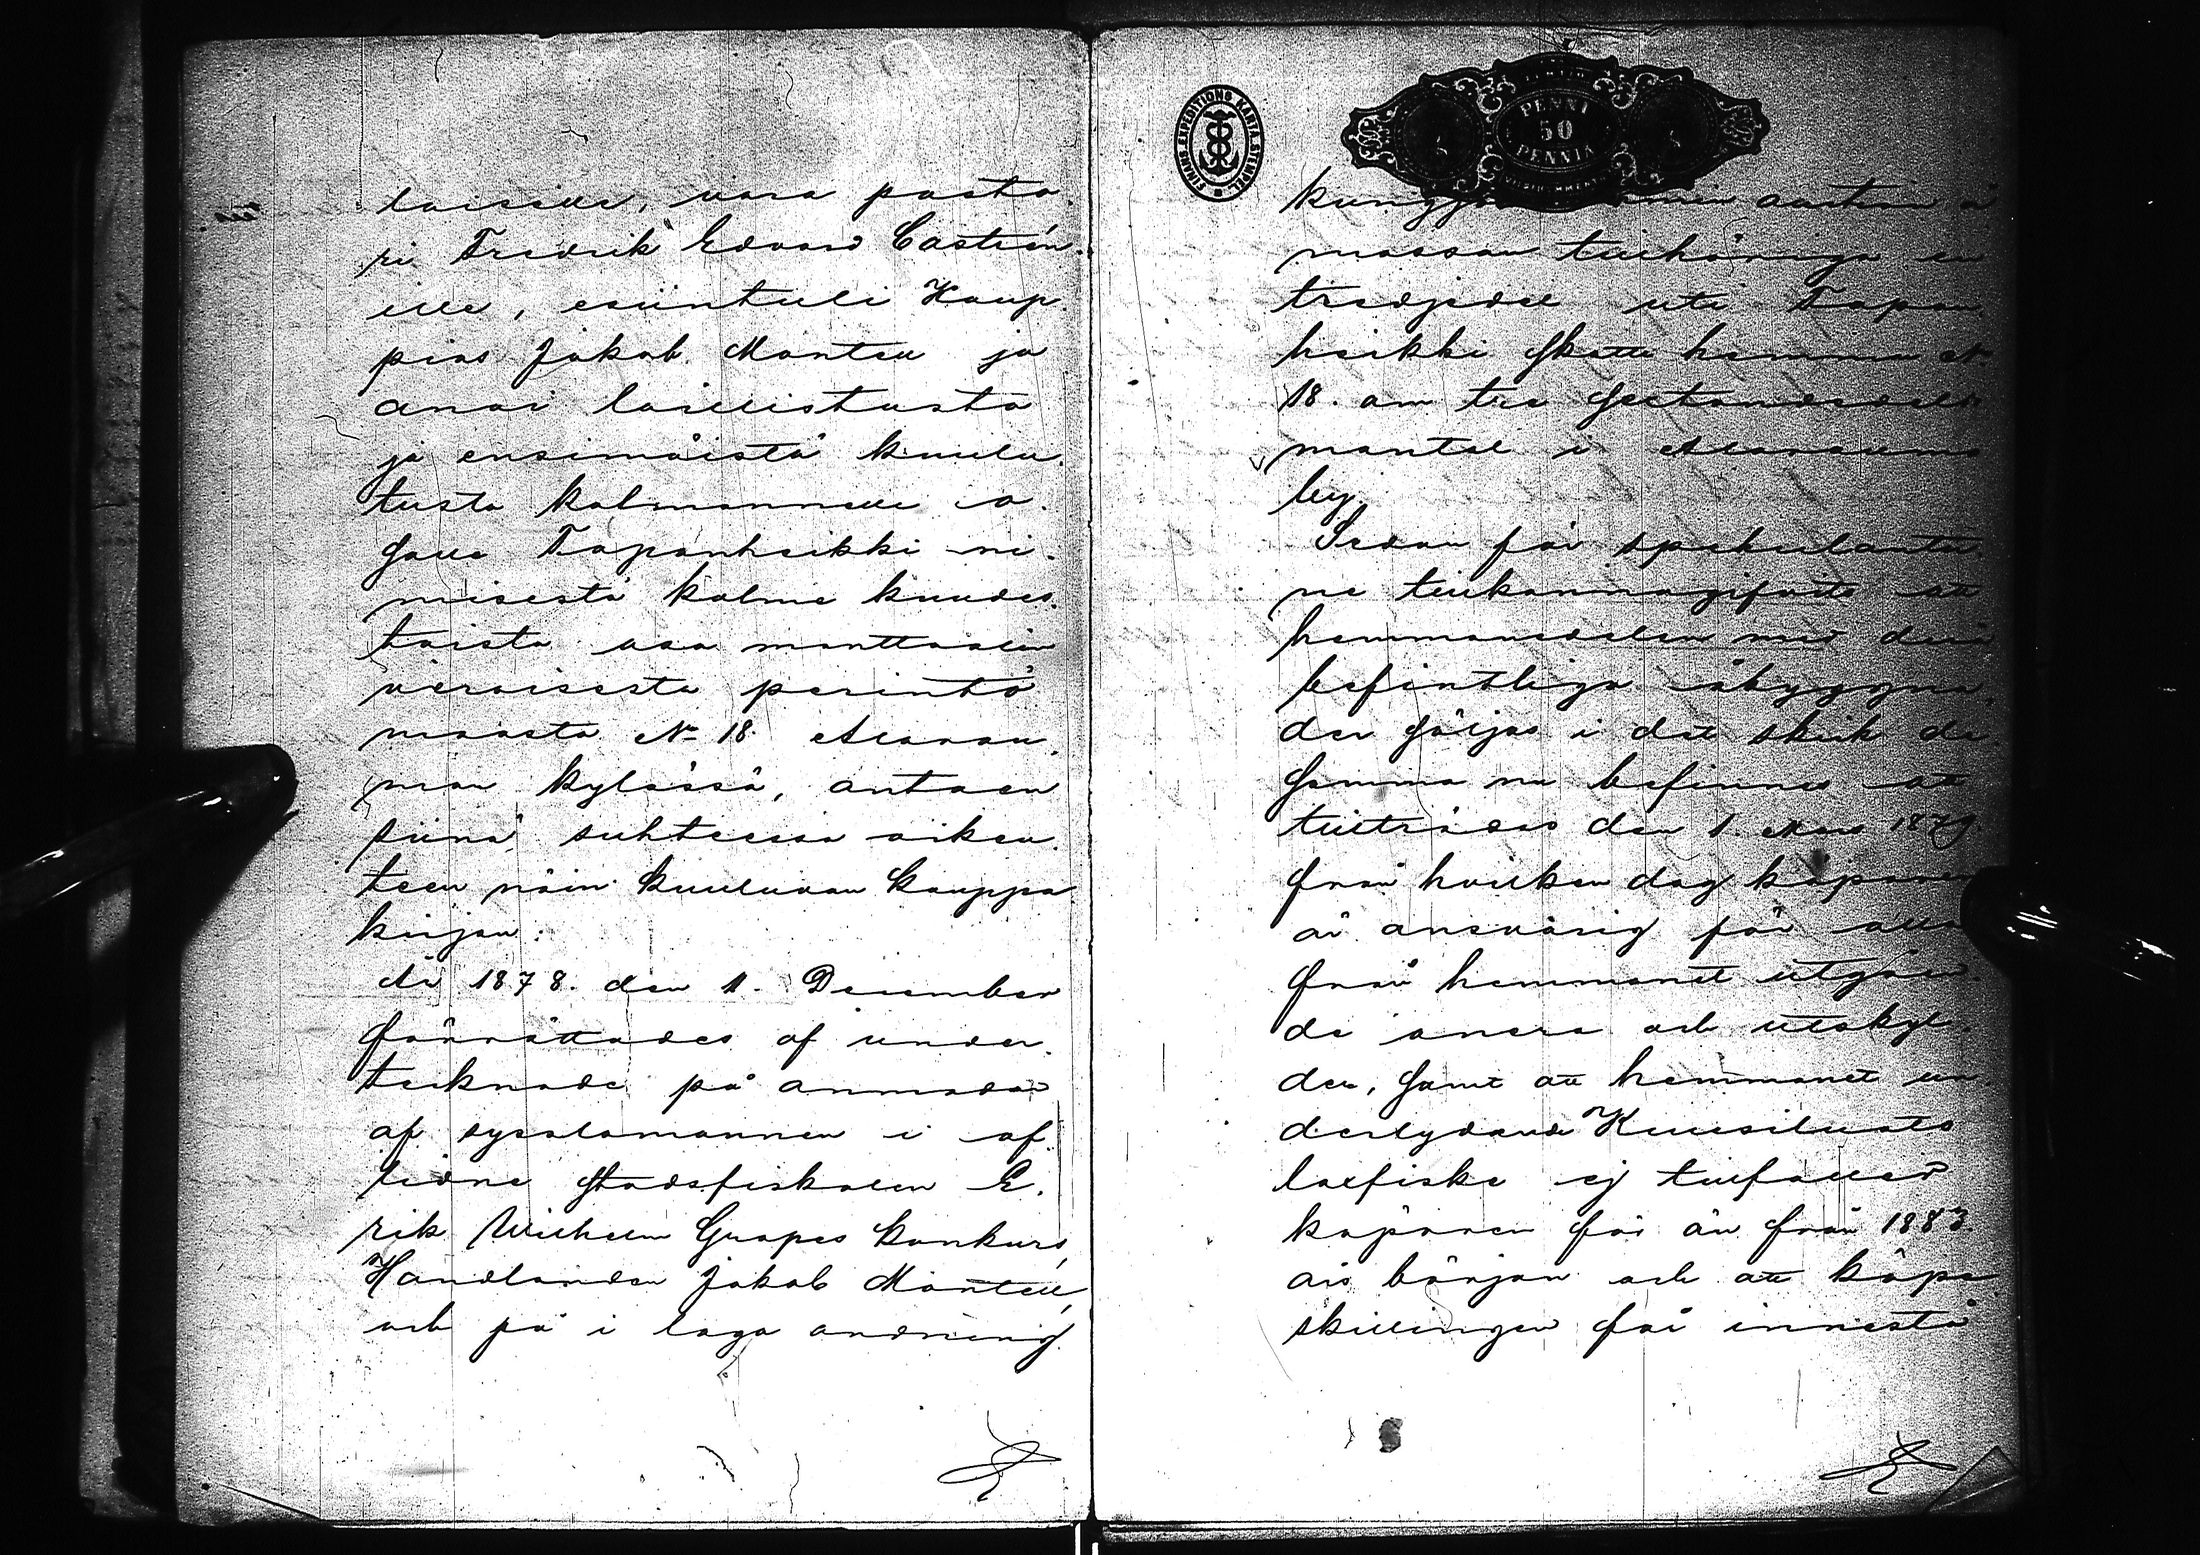 laisille, vara pasto-
ri Fredrik Edvard Castrén-
ille, esiintuli Kaup-
pias Jakob Montell ja
anoi laillistusta
ja ensimäistä kuulu-
tusta kolmannelle o-
salle Tapanheikki ni-
misestä kolme kuudes-
toista osa manttaalin
veroisesta perintö
maasta No 18 Alarau-
man kylässä, antaen
siinä suhteessa oikeu-
teen näin kuuluvan kauppa
kirjan:
År 1878. den 11. December
förrättades af under-
tecknade på anmodan
af sysslomannen i af-
lidne Stadsfiskalen E-
rik Wilhelm Grapes konkurs,
Handlanden Jakob Montell,
och på i laga ordning
PENNI
50
PENNIÄ
FINSKA EXPEDITIONS KARTA STEMPEL
auktion å
massan tillhöriga en
tredjedel uti Tapan-
heikki Skatte hemman No
18. om tre Sextondedels
mantal i Alaraumo
by.
Sedan för spekulanter-
ne tillkännagifvits att
hemmansdelen med derå
befintliga åbyggna-
der säljas i det skick de-
samma nu befinnes att
tillträdas den 1. Mars 1879.
från hvilken dag köparen
är ansvarig för alla
från hemmanet utgåen-
de onera och utskyl-
der, samt att hemmanet un-
derlydande Kuusiluoto
laxfiske ej tillfaller
köparen för än från 1883
års början och att köpe
skillingen får innestå